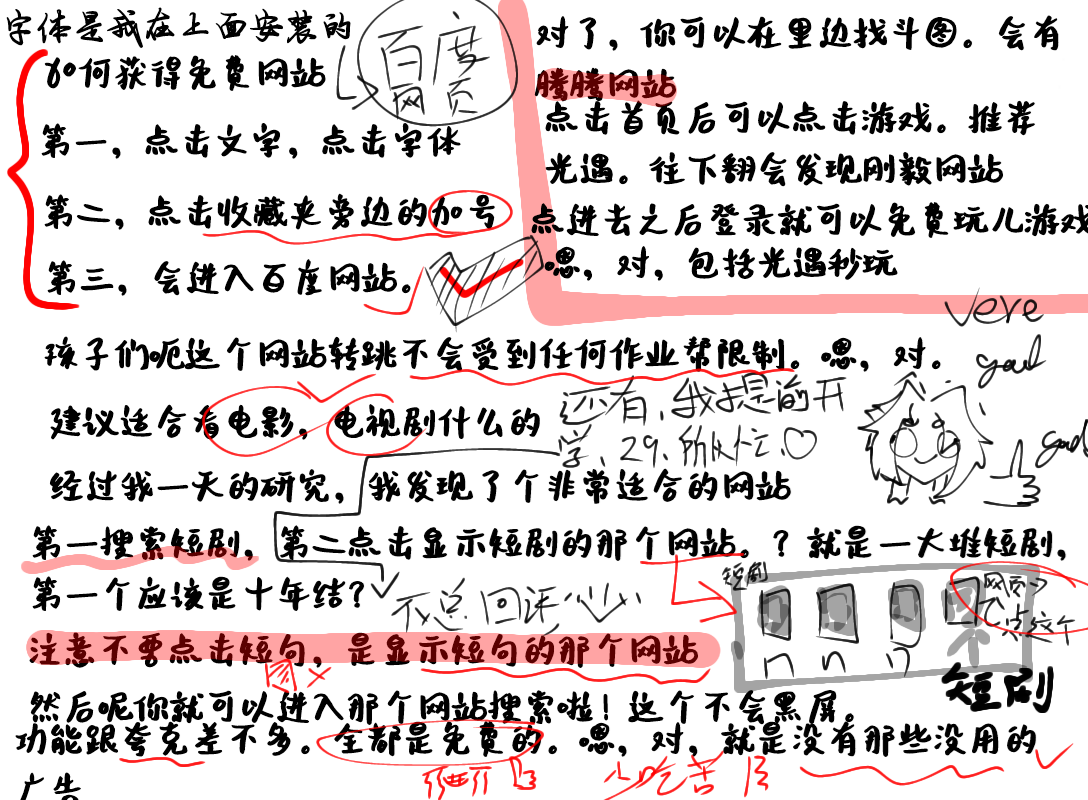 字体是我在上面安装的
如何获得免费网站
百度
网页
第一，点击文字，点击字体
第二，点击收藏夹旁边的加号
第三，会进入百度网站。
对了，你可以在里边找斗图。会有
腾腾网站
点击首页后可以点击游戏。推荐
光遇。往下翻会发现刚毅网站
点进去之后登录就可以免费玩儿游戏
嗯，对，包括光遇秒玩
vere
gaud
gad
孩子们呃这个网站转跳不会受到任何作业帮限制。嗯，对。
建议适合看电影，电视剧什么的
还有、我提前开
学、29、所以忙、♡
经过我一天的研究，我发现了个非常适合的网站
第一搜索短剧，第二点击显示短剧的那个网站。？就是一大堆短剧，
第一个应该是十年结？
不总回评
短剧
网页
点这个
短剧
注意不要点击短句，是显示短句的那个网站
图×
然后呢你就可以进入那个网站搜索啦！这个不会黑屏。
功能跟夸克差不多。全都是免费的。嗯，对，就是没有那些没用的
广告
少吃苦